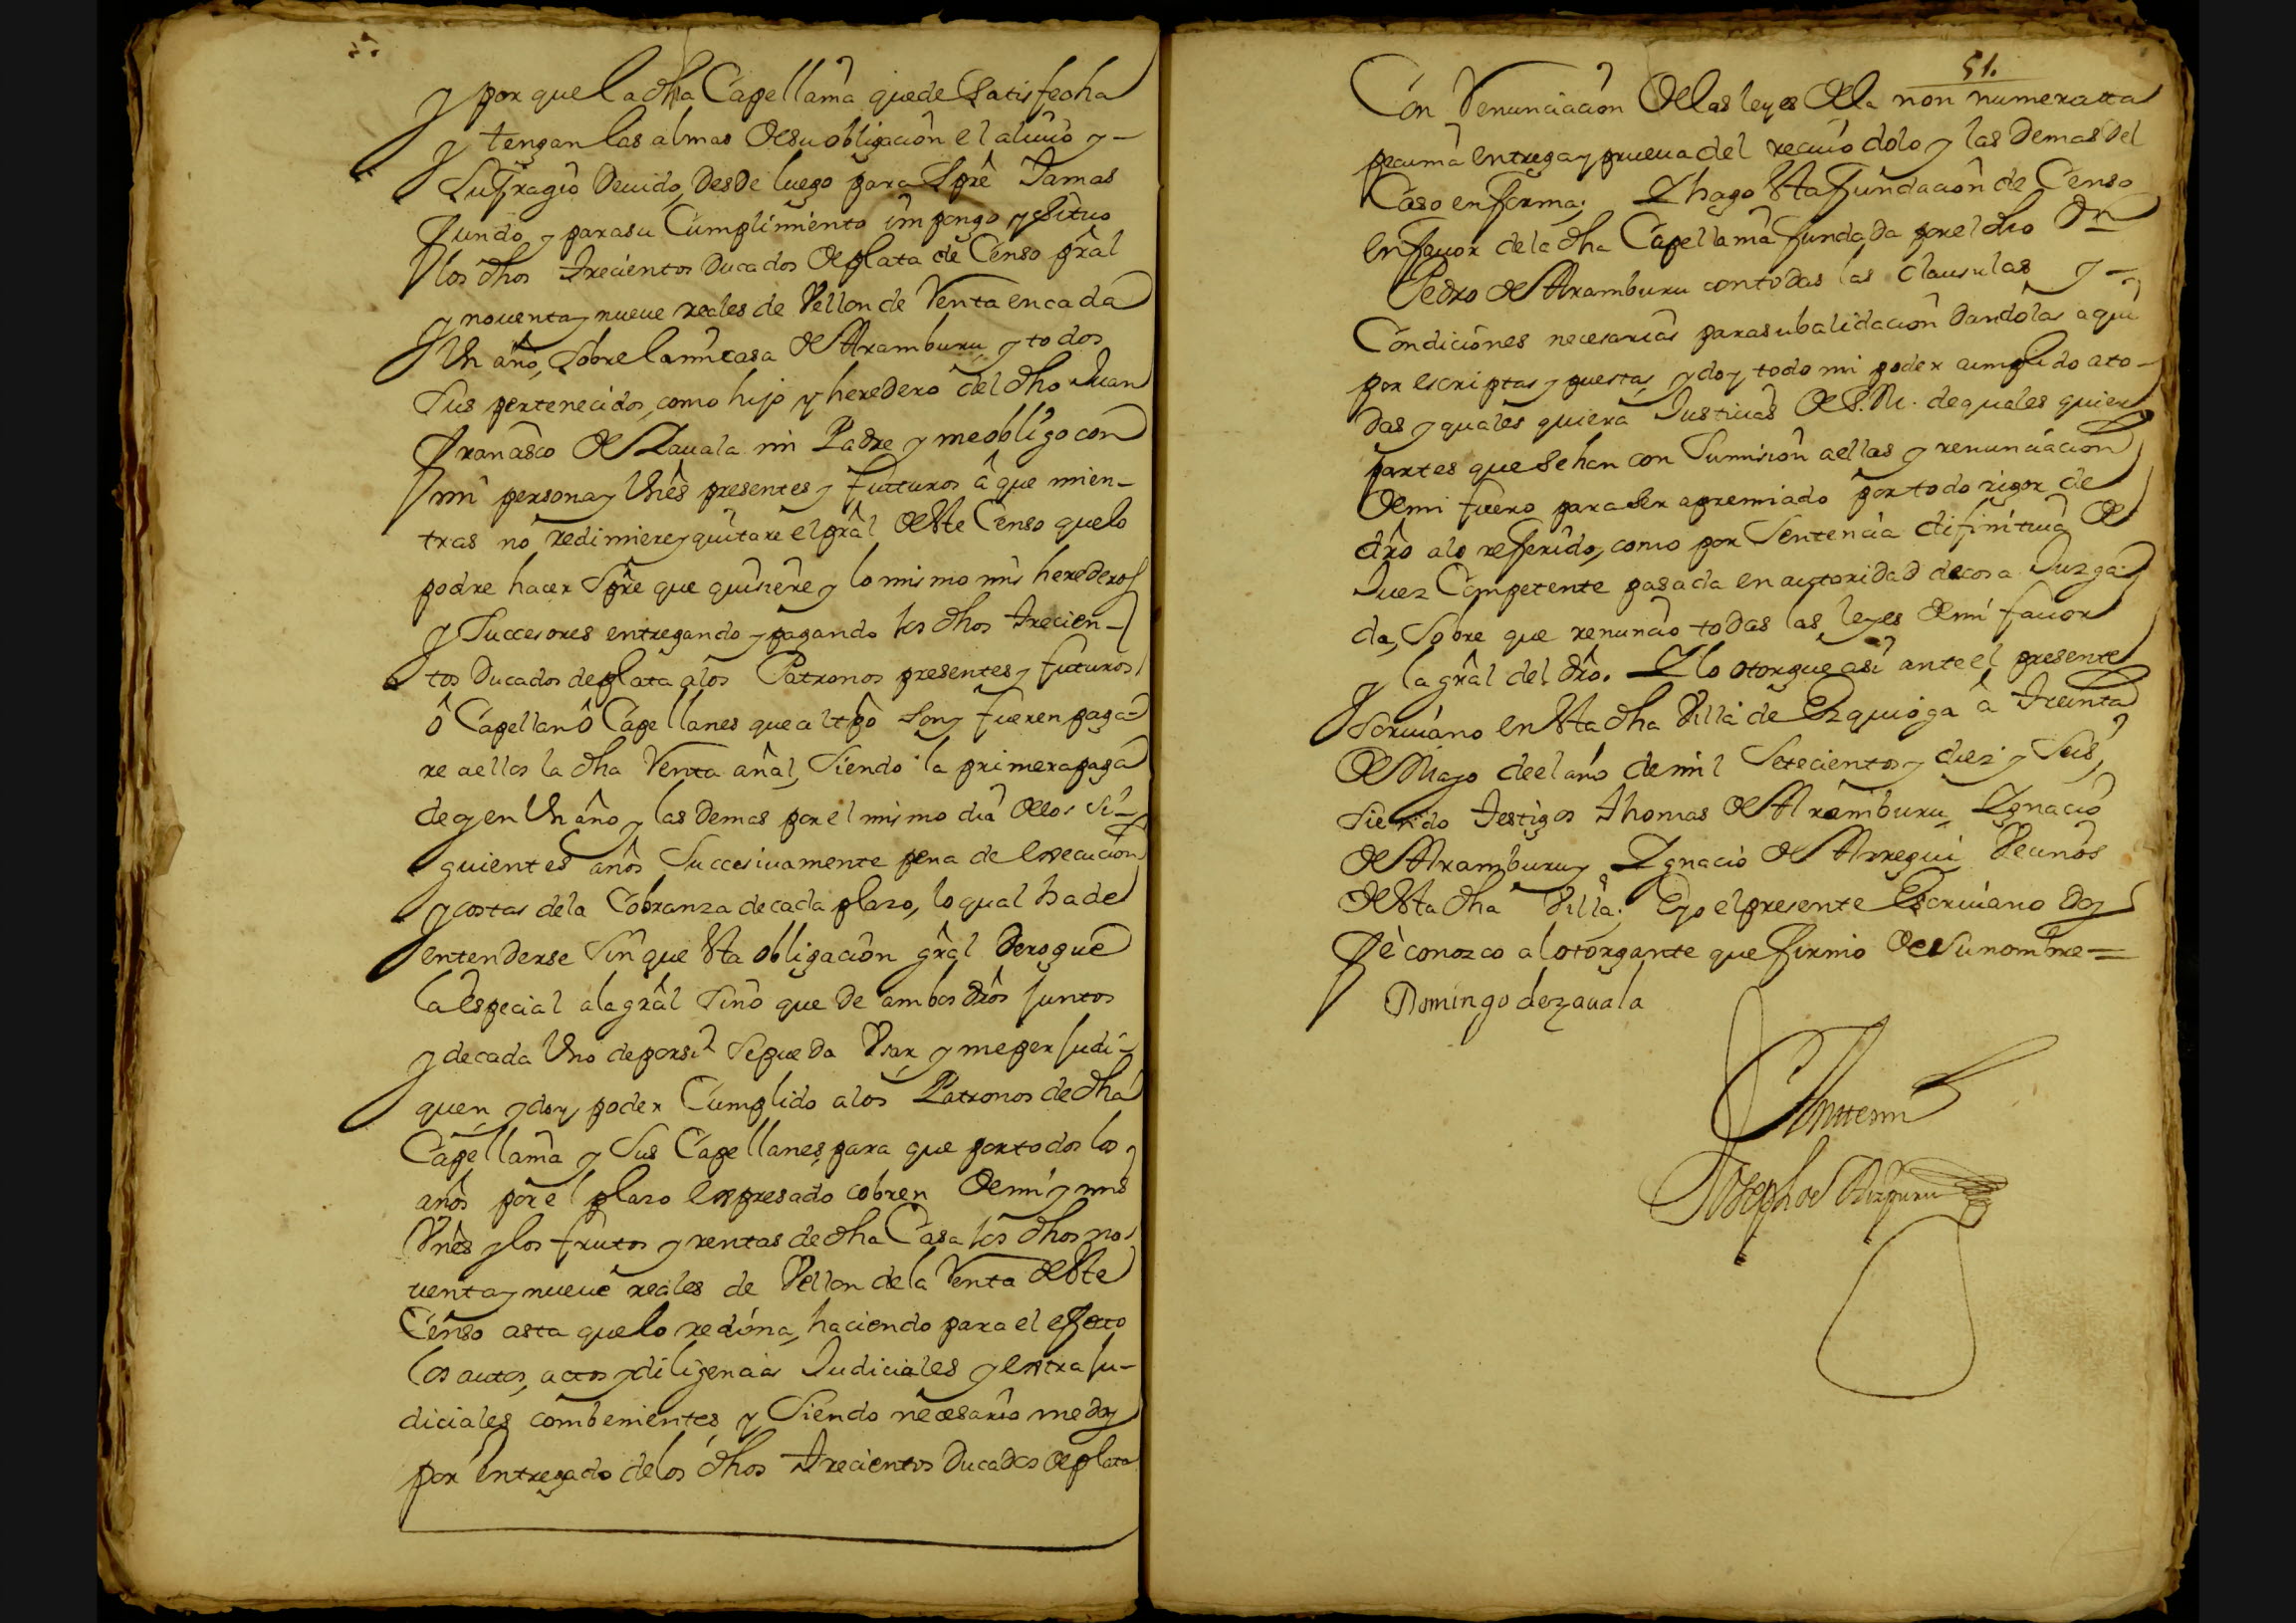 y por que la dha Capellania quede Satisfecha
y tengan las almas de su obligacion el aliuio y -
Sufragio deuido, desde luego para Spre Jamas
fundo, y para su Cumplimiento impongo y Situo
los dhos trecientos ducados de plata de Censo pral
y nouenta y nueue reales de Vellon de Renta en cada
Un año, Sobre la mi casa de Aramburu, y todos
Sus pertenecidos, como hijo y heredero del dho Juan
Francisco de Zauala mi Padre y me obligo con
mi persona y Vnes presentes y futuros â que mien-
tras no redimiere y quitare el pral de Ste Censo que lo
podre hacer Spre que quisiere y lo mismo mis herederos
y Succesores entregando y pagando los dhos trecien-
tos Ducados de plata a los Patronos presentes y futuros
ô Capellan ô Capellanes que al tpo Son y fueren paga-
re a ellos la dha Renta añal, Siendo la primera paga
de oy en Vn año y las demas por el mismo dia de los Si-
guientes años Succesiuamente pena de execucion
y costas de la Cobranza de cada plazo, lo qual ha de
entenderse Sin que Sta obligacion gral derogue
la especial a la gral Sino que de ambos dros juntos
y de cada Vno de por si Se pueda Vsar, y me perjudi-
quen, y doy poder Cumplido a los Patronos de dha
Capellania y Sus Capellanes, para que por todos los
años por el plazo expresado cobren de mi y mis
Vnes y los frutos y rentas de dha Casa los dhos no-
uenta y nueue reales de Vellon de la Renta de Ste
Censo asta que lo redima, haciendo para el efecto
los autos, actos y diligencias Judiciales y extraju-
diciales combenientes, y Siendo necesario me doy
por entregado de los dhos trecientos Ducados de plata
51.
Con Renunciacion de las leyes de la non numerata
pecunia entrega y prueua del reciuo dolo y las demas del
Caso en forma; Y hago Sta fundacion de Censo
en fauor de la dha Capellania fundada por el dho Dn
Pedro de Aramburu con todas las clausulas y -
Condiciones necesarias para su balidacion dandolas aqui
por escriptas y puestas, y doy todo mi poder cumplido a to-
das y quales quiera Justicias de S.M. de quales quier
partes que Sehan con Sumision a ellas y renunciacion
de mi fuero para Ser apremiado por todo rigor de
dro a lo referido, como por Sentencia difinitiua de
Juez Competente pasada en autoridad de cosa Juzga-
da, Sobre que renuncio todas las leyes de mi fauor
y la gral del dro. Y lo otorgue asi ante el presente
Scriuano en Sta dha Villa de Ezquioga â treinta
de Mayo de el año de mil Setecientos y diez y Seis,
Siendo testigos Thomas de Aramburu, Ygnacio
de Aramburu y Ygnacio de Arregui Vecinos
de Sta dha Villa; E yo el presente Escriuano doy
fè conozco al otorgante que firmo de Su nombre =
Domingo de zauala
Ante mi
Joseph de Aizpuru